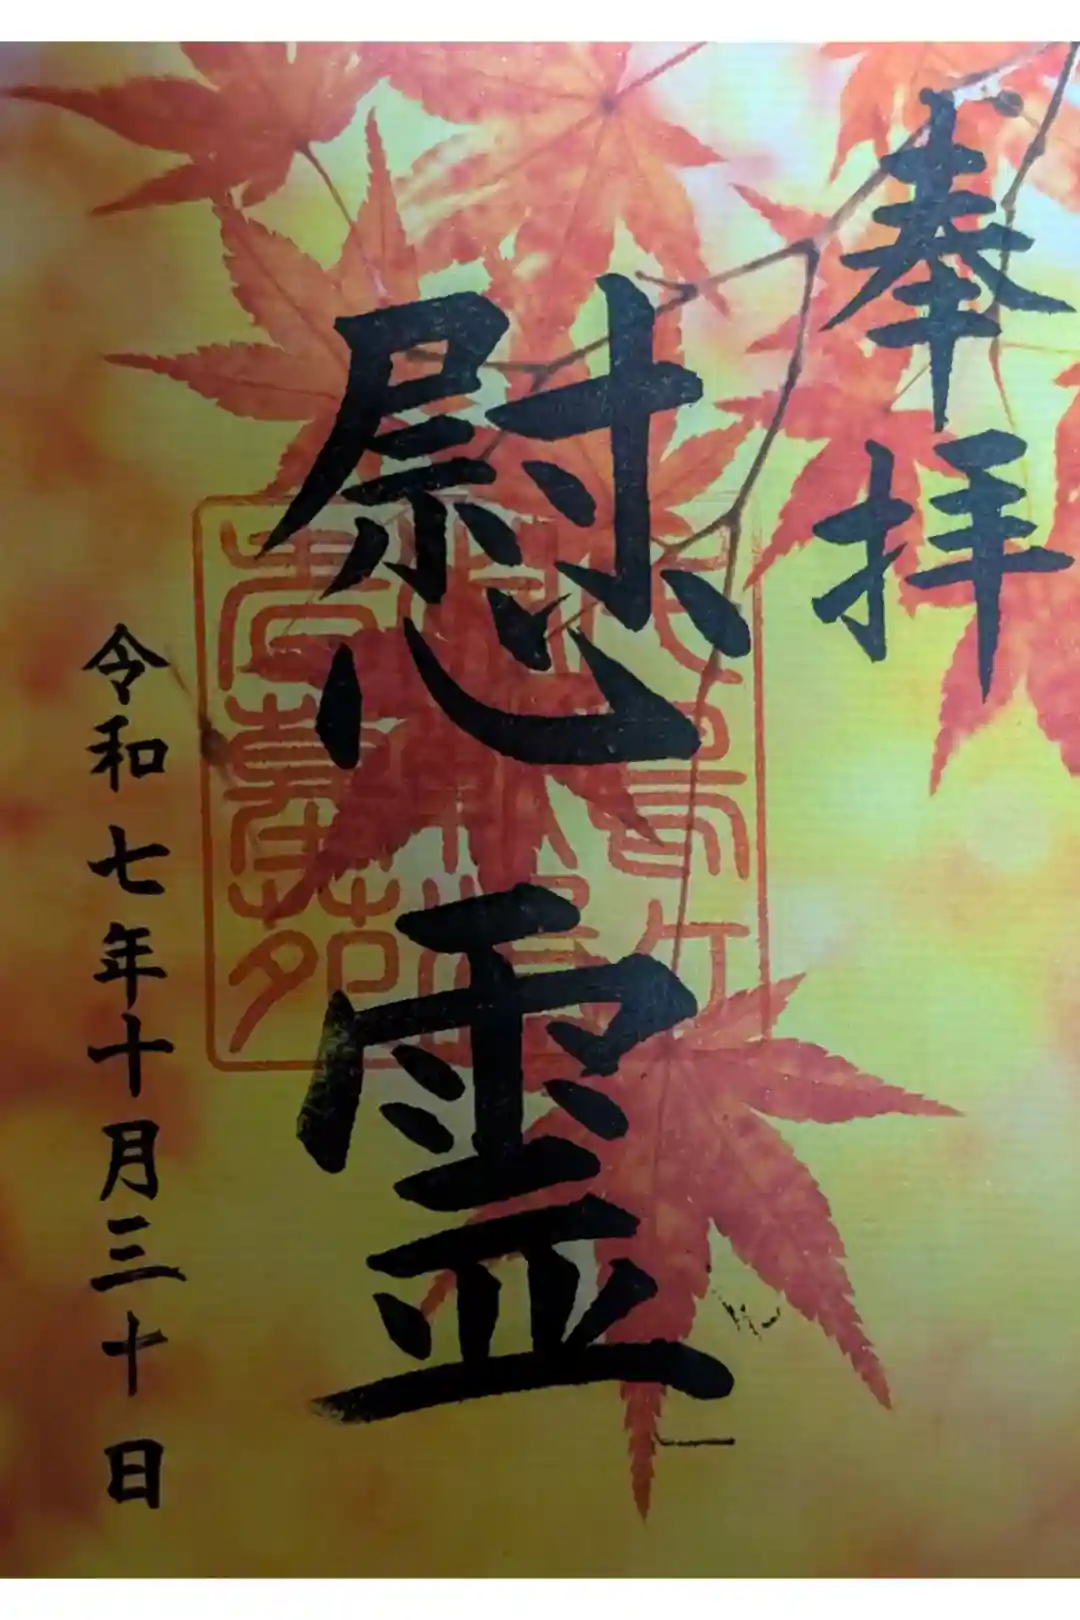 奉拝
慰霊
令和七年十月三十日